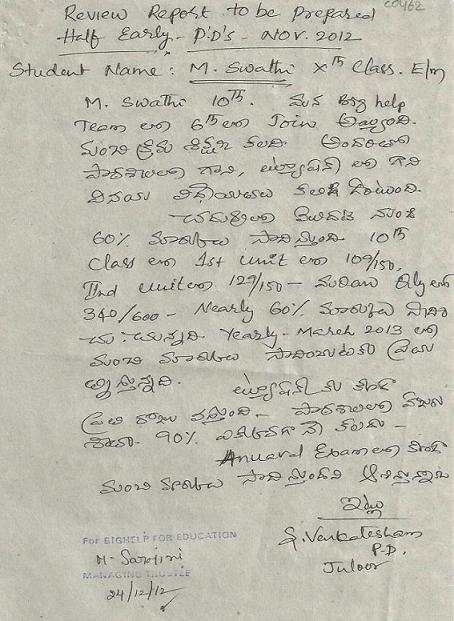 C0462
Review Report to be Prepared
Half Early - P.D's - NOV. 2012
Student Name : M. Swathi Xth Class. E/m
M. Swathi 10th. మన Big help
Team లో 6th లో Join అయ్యింది.
మంచి క్రమ శిక్షణ కలది. అందరితో
పాఠశాలలో గాని, ట్యూషన్ లో గాని
వినయ విధేయతలు కలిగి ఉంటుంది.
చదువులో మొదటి నుండి
60% మార్కులు సాధిస్తుంది. 10th
Class లో 1st unit లో 109/150,
IInd unit లో 129/150 - మరియు Qly లో
340/600 - Nearly 60% మార్కులు
Yearly - March 2013 లో
మంచి మార్కులు సాధించుటకు ప్రయ
త్నిస్తున్నది. ట్యూషన్ కు కూడా
ప్రతి రోజు వస్తుంది - పాఠశాలలో హాజరు
శాతం 90% కలదు -
Annual Exam లో కూడా
మంచి మార్కులు సాధిస్తుందని ఆశిస్తున్నాను
ఇట్లు
G. Venkatesham
P.D.
Juloor
For BIGHELP FOR EDUCATION
M. Sarojini
MANAGING TRUSTEE
24/12/12